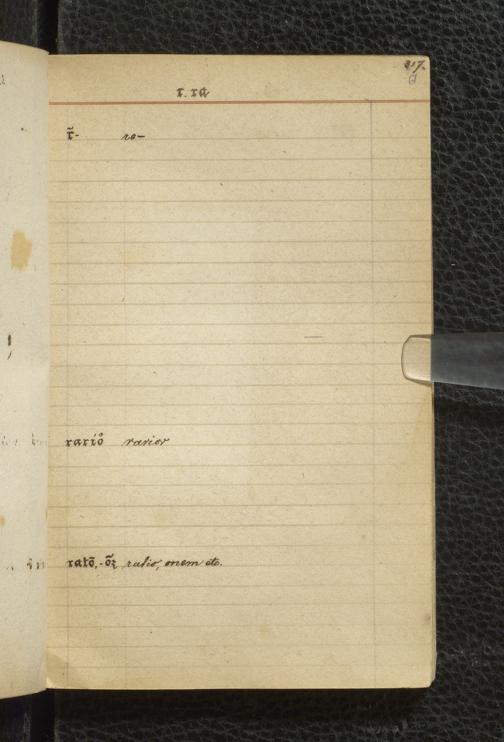 217.
r. ra
r̃- re-
rariỏ rarior
ratō, -õꝫ ratio, onem etc.